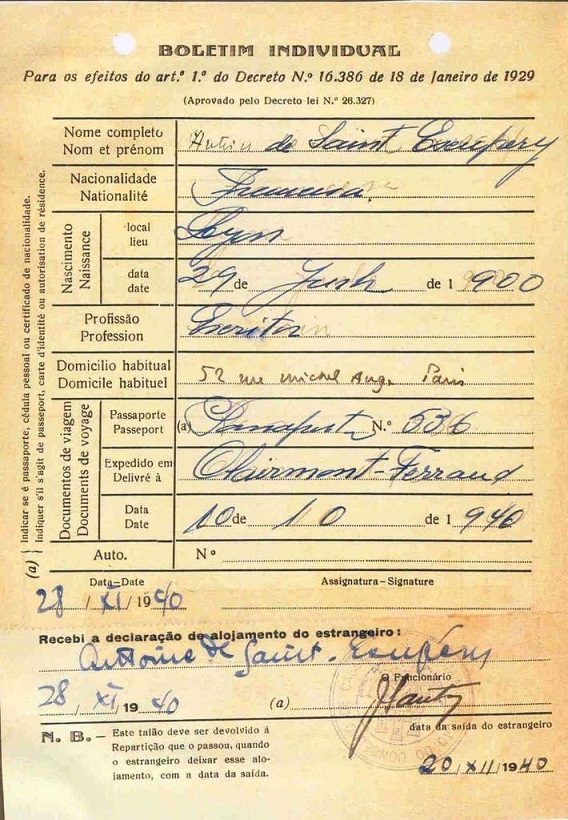 BOLETIM INDIVIDUAL
Para os efeitos do art.º 1.º do Decreto N.º 16.386 de 18 de Janeiro de 1929
(Aprovado pelo Decreto lei N.º 26.327)
Nome completo
Nom et prénom
de Saint Exupéry
Nacionalidade
Nationalité
Francesa
Nascimento
Naissance
local
lieu
Lyon
data
date
29 de de 1 900
Profissão
Profession
Escritor
Domicilio habitual
Domicile habituel
52 rue Michel Ange Paris
Documentos de viagem
Documents de voyage
Passaporte
Passeport
(a) Passaporte N.º 536
Expedido em
Delivré à
Clairmont-Ferrand
Data
Date
10 de 10 de 1 940
Auto.
Nº
(a) { Indicar se é passaporte, cédula pessoal ou certificado de nacionalidade.
Indiquer s'il s'agit de passeport, carte d'identité ou autorisation de résidence.
Data-Date
28 / XI / 19 40
Assignatura-Signature
Recebi a declaração de alojamento do estrangeiro:
Antoine de Saint-Exupéry
28 / XI / 19 40
(a)
O Funcionário
N. B.— Este talão deve ser devolvido á
Repartição que o passou, quando
o estrangeiro deixar esse alo-
jamento, com a data da saída.
data da saída do estrangeiro
20 / XII / 1940